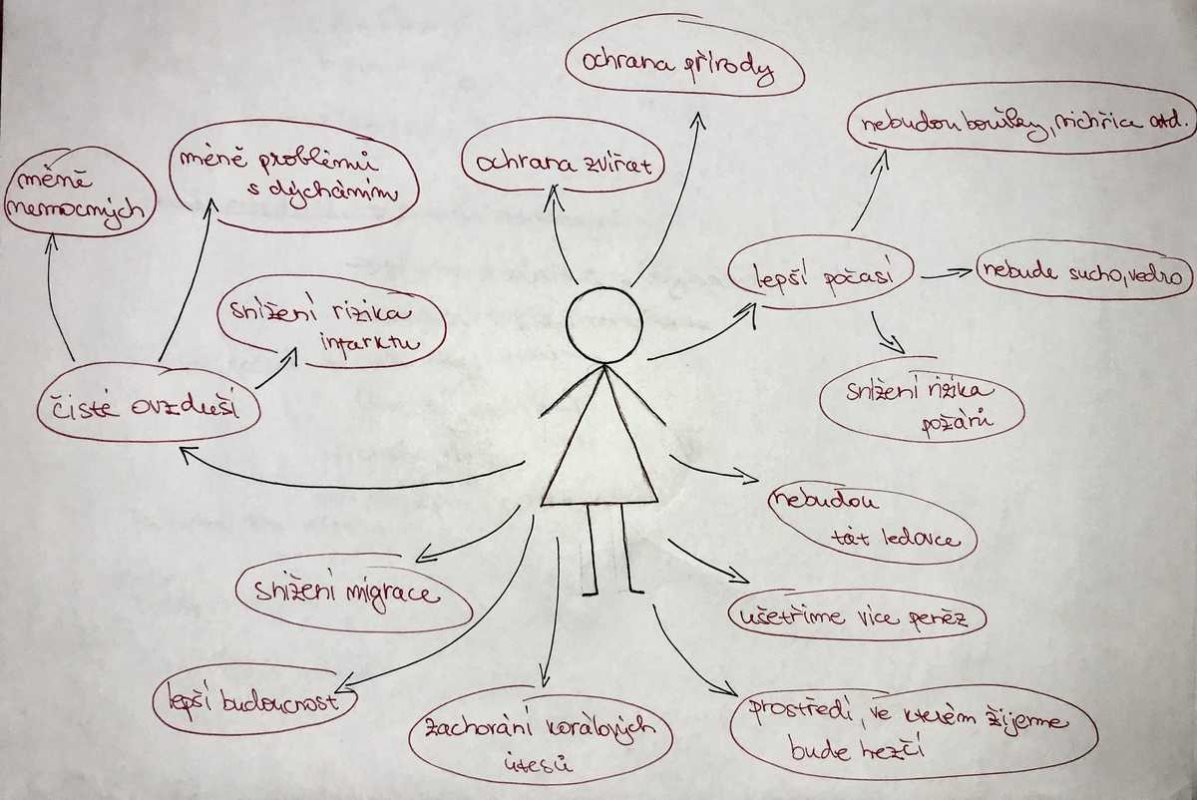 ochrana přírody
nebudou bouřky, vichřice atd.
méně problémů
s dýcháním
ochrana zvířat
méně
nemocných
lepší počasí
nebude sucho, vedro
snížení rizika
infarktu
čisté ovzduší
snížení rizika
požárů
nebudou
tát ledovce
snížení migrace
ušetříme více peněz
lepší budoucnost
zachování korálových
útesů
prostředí, ve kterém žijeme
bude hezčí